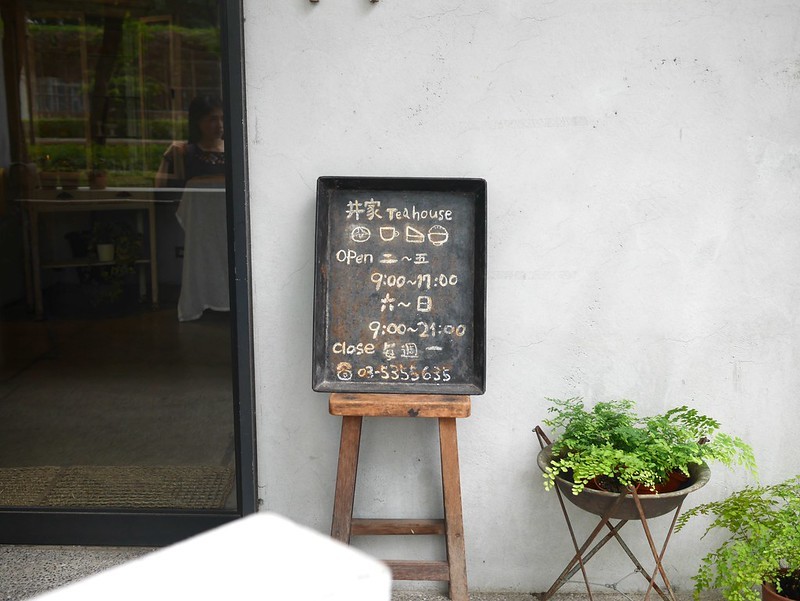 井家 Teahouse
open 二~五
9:00~17:00
六~日
9:00~21:00
close 每週一
03-5355635